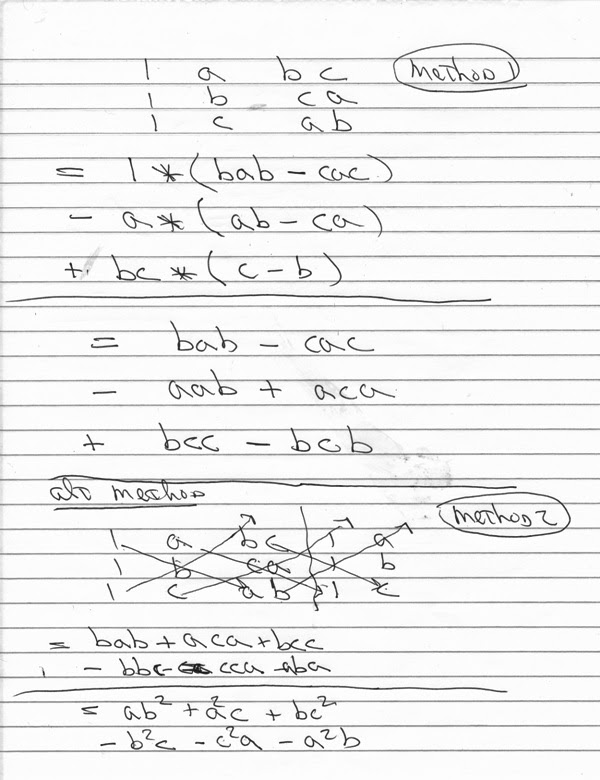 1 a bc Method 1
1 b ca
1 c ab
= 1 * (bab - cac)
- a * (ab - ca)
+ bc * (c - b)
= bab - cac
- aab + aca
+ bcc - bcb
alt method
Method 2
1 a bc 1 a
1 b ca 1 b
1 c ab 1 c
= bab + aca + bcc
- bbc - cca - aba
= ab² + a²c + bc²
- b²c - c²a - a²b